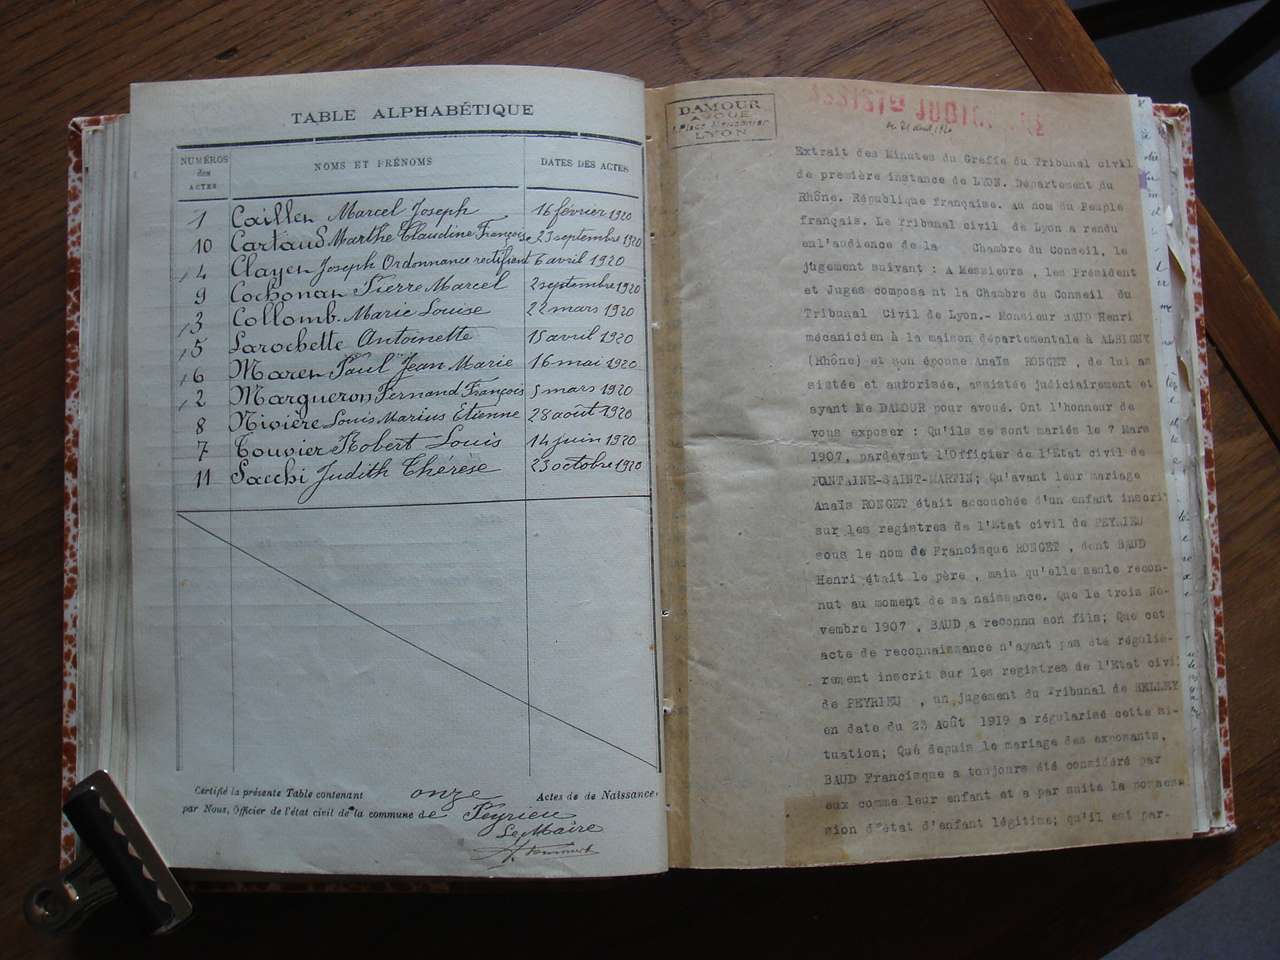 TABLE ALPHABÉTIQUE
NUMÉROS des ACTES NOMS ET PRÉNOMS DATES DES ACTES
1 Cailler Marcel Joseph 16 février 1920
10 Cartaud Marthe Claudine Françoise 23 septembre 1920
4 Clayer Joseph Ordonnance rectifient 6 avril 1920
9 Cochonat Pierre Marcel 2 septembre 1920
3 Collomb Marie Louise 22 mars 1920
5 Larochette Antoinette 15 avril 1920
6 Maret Paul Jean Marie 16 mai 1920
2 Margueron Fernand François 5 mars 1920
8 Rivière Louis Marius Etienne 28 août 1920
7 Touvier Robert Louis 14 juin 1920
11 Sacchi Judith Thérèse 23 octobre 1920
Certifié la présente Table contenant onze Actes de de Naissance.
par Nous, Officier de l'état civil de la commune de Peyrieu
Le Maire
DAMOUR
AVOUÉ
LYON
Extrait des Minutes du Greffe du Tribunal civil
de première instance de LYON. Département du
Rhône. République française. au nom du Peuple
français. Le Tribunal civil de Lyon a rendu
enl'audience de la Chambre du Conseil, le
jugement suivant : A Messieurs , les Président
et Juges composa nt la Chambre du Conseil du
Tribunal Civil de Lyon.- Monsieur BAUD Henri
mécanicien à la maison départementale à ALBIGNY
(Rhône) et son épouse Anaïs RONGET , de lui as
sistée et autorisée, assistée judiciairement et
ayant Me DAMOUR pour avoué. Ont l'honneur de
vous exposer : Qu'ils se sont mariés le 7 Mars
1907, pardevant l'Officier de l'Etat civil de
FONTAINE-SAINT-MARTIN; Qu'avant leur mariage
Anaïs RONGET était accouchée d'un enfant inscrit
sur les registres de l'Etat civil de PEYRIEU
sous le nom de Francisque RONGET , dont BAUD
Henri était le père , mais qu'elle seule recon-
nut au moment de sa naissance. Que le trois No-
vembre 1907 , BAUD a reconnu son fils; Que cet
acte de reconnaissance n'ayant pas été réguliè-
rement inscrit sur les registres de l'Etat civil
de PEYRIEU , un jugement du Tribunal de BELLEY
en date du 23 Août 1919 a régularisé cette si-
tuation; Qué depuis le mariage des exposants,
BAUD Francisque a toujours été considéré par
eux comme leur enfant et a par suite la posses-
sion d'état d'enfant légitime; qu'il est par-